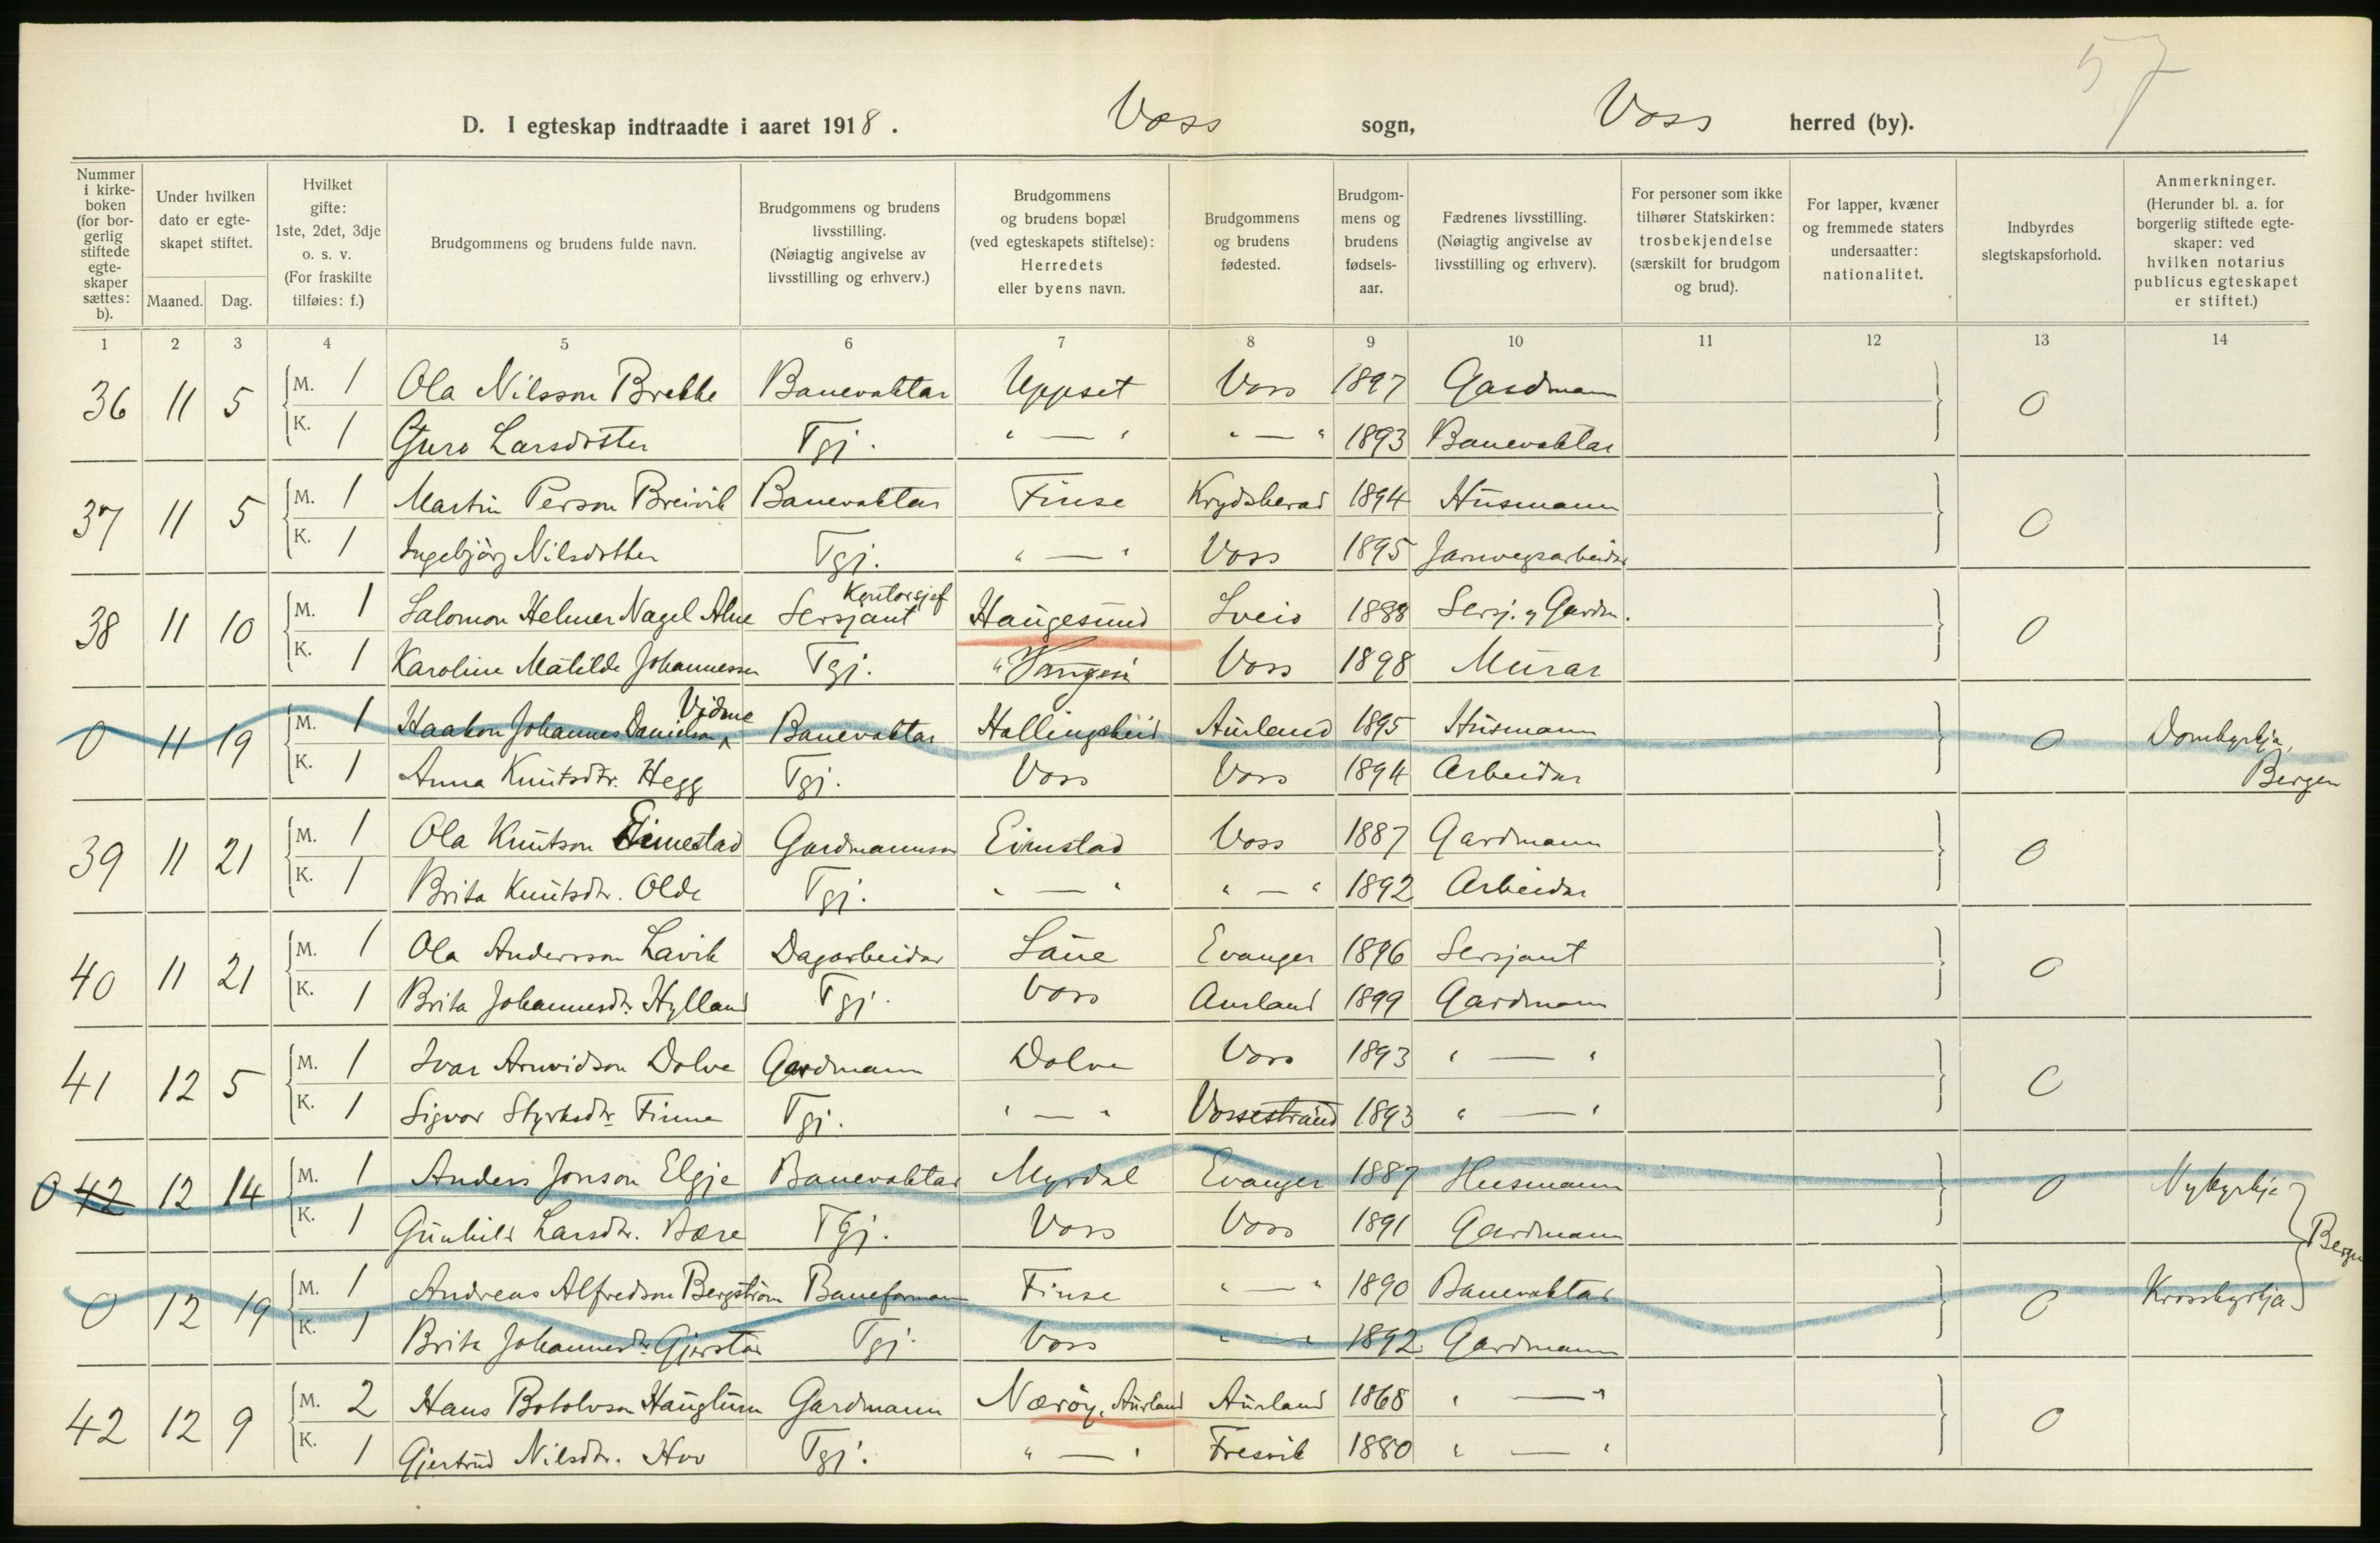 57
D. I egteskap indtraadte i aaret 1918. Voss sogn, Voss herred (by).
Nummer i kirke-boken (for bor-gerlig stiftede egte-skaper sættes: b).
Under hvilken dato er egte-skapet stiftet.
Maaned. Dag.
Hvilket gifte: 1ste, 2det, 3dje o. s. v. (For fraskilte tilføies: f.)
Brudgommens og brudens fulde navn.
Brudgommens og brudens livsstilling. (Nøiagtig angivelse av livsstilling og erhverv.)
Brudgommens og brudens bopæl (ved egteskapets stiftelse): Herredets eller byens navn.
Brudgommens og brudens fødested.
Brudgom-mens og brudens fødsels-aar.
Fædrenes livsstilling. (Nøiagtig angivelse av livsstilling og erhverv).
For personer som ikke tilhører Statskirken: trosbekjendelse (særskilt for brudgom og brud).
For lapper, kvæner og fremmede staters undersaatter: nationalitet.
Indbyrdes slegtskapsforhold.
Anmerkninger. (Herunder bl. a. for borgerlig stiftede egte-skaper: ved hvilken notarius publicus egteskapet er stiftet.)
1 2 3 4 5 6 7 8 9 10 11 12 13 14
36 11 5 M. 1 Ola Nilsson Brekke Banevaktar Uppset Voss 1897 Gardmann 0
K. 1 Guro Larsdotter Tgj. " — " " — " 1893 Banevaktar
37 11 5 M. 1 Martin Person Breivik Banevaktar Finse Krydsherad 1894 Husmann 0
K. 1 Ingebjörg Nilsdotter Tgj. " — " Voss 1895 Jarnvegsarbeidar
38 11 10 M. 1 Salomon Helmer Nagel Alne Sersjant Kontorsjef Haugesund Sveio 1888 Sersj. og Gardm. 0
K. 1 Karoline Matilde Johannessen Tgj. " Vangen Voss 1898 Murar
0 11 19 M. 1 Haakon Johannes Danielson Vidme Banevaktar Hallingskeid Aurland 1895 Husmann 0 Domkyrkja,
K. 1 Anna Knutsdtr. Hegg Tgj. Voss Voss 1894 Arbeidar Bergen
39 11 21 M. 1 Ola Knutson Eimestad Gardmannson Eimstad Voss 1887 Gardmann 0
K. 1 Brita Knutsdtr. Olde Tgj. " — " " — " 1892 Arbeidar
40 11 21 M. 1 Ola Andersson Lavik Dagarbeidar Saue Evanger 1896 Sersjant 0
K. 1 Brita Johannesdtr. Hylland Tgj. Voss Aurland 1899 Gardmann
41 12 5 M. 1 Ivar Arnvidson Dolve Gardmann Dolve Voss 1893 " — " 0
K. 1 Sigvor Styrksdtr. Finne Tgj. " — " Vossestrand 1893 " — "
0 42 12 14 M. 1 Anders Jonson Elgje Banevaktar Myrdal Evanger 1887 Husmann 0 Nykyrkja
K. 1 Gunhild Larsdtr. Bære Tgj. Voss Voss 1891 Gardmann Bergen
0 12 19 M. 1 Andreas Alfredson Bergström Baneformann Finse " — " 1890 Banevaktar 0 Krosskyrkja
K. 1 Brita Johannesdtr. Gjerstad Tgj. Voss " — " 1892 Gardmann
42 12 9 M. 2 Hans Botolvson Hauglum Gardmann Nærøy, Aurland Aurland 1868 " — " 0
K. 1 Gjertrud Nilsdtr. Hov Tgj. " — " Fresvik 1880 " — "